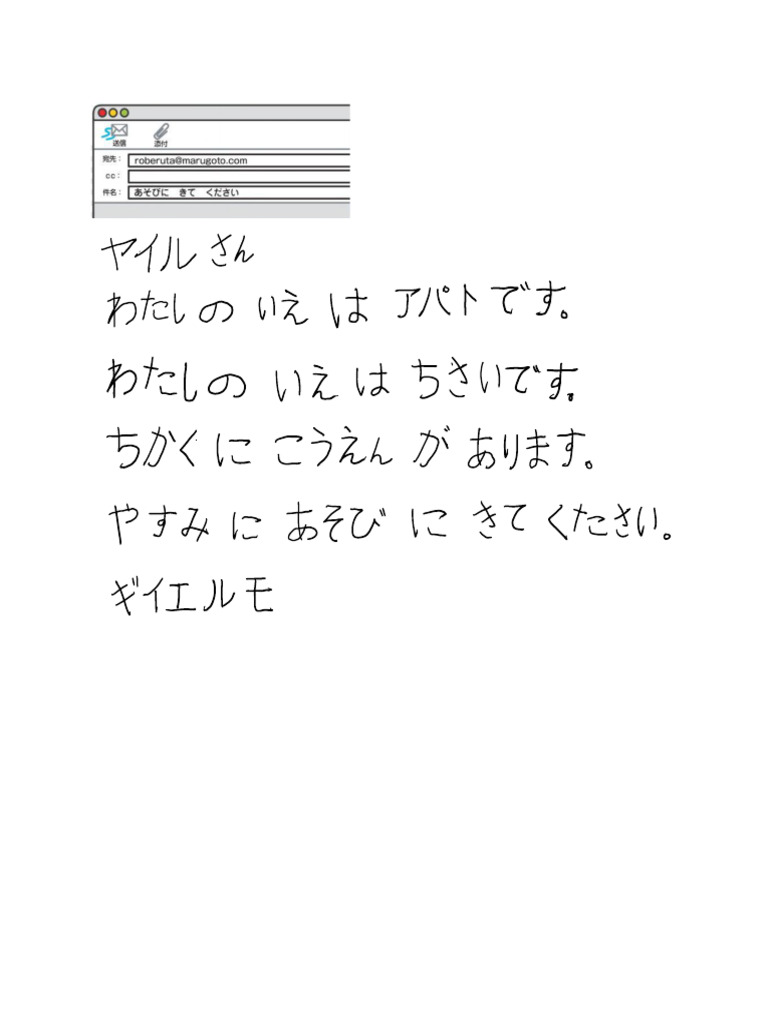 送信 添付
宛先： roberuta@marugoto.com
cc：
件名： あそびに きて ください
ヤイルさん
わたしの いえ は アパト です。
わたしの いえ は ちさいです。
ちかく に こうえん が あります。
やすみ に あそび に きて くたさい。
ギイエルモ